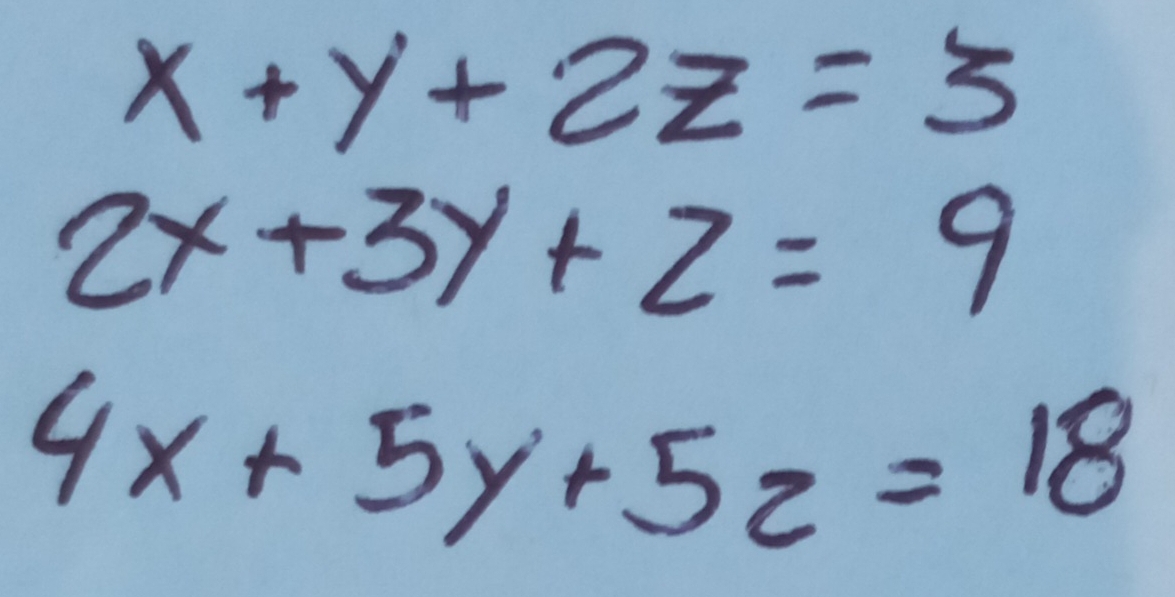 x + y + 2z = 3
2x + 3y + z = 9
4x + 5y + 5z = 18